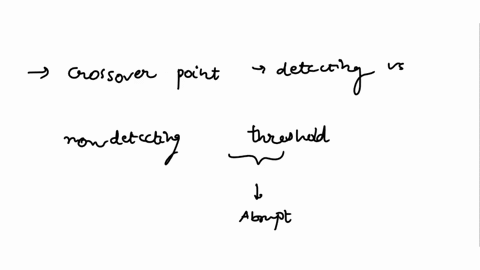 → Crossover point → detecting vs
non detecting threshold
↓
Abrupt